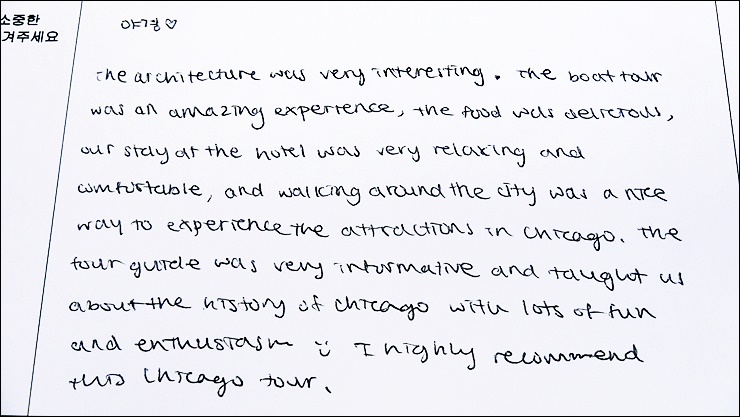 소중한
겨주세요
야경♡
The architecture was very interesting. The boat tour
was an amazing experience, the food was delicious,
our stay at the hotel was very relaxing and
comfortable, and walking around the city was a nice
way to experience the attractions in Chicago. The
tour guide was very informative and taught us
about the history of Chicago with lots of fun
and enthusiasm ü I highly recommend
this Chicago tour.